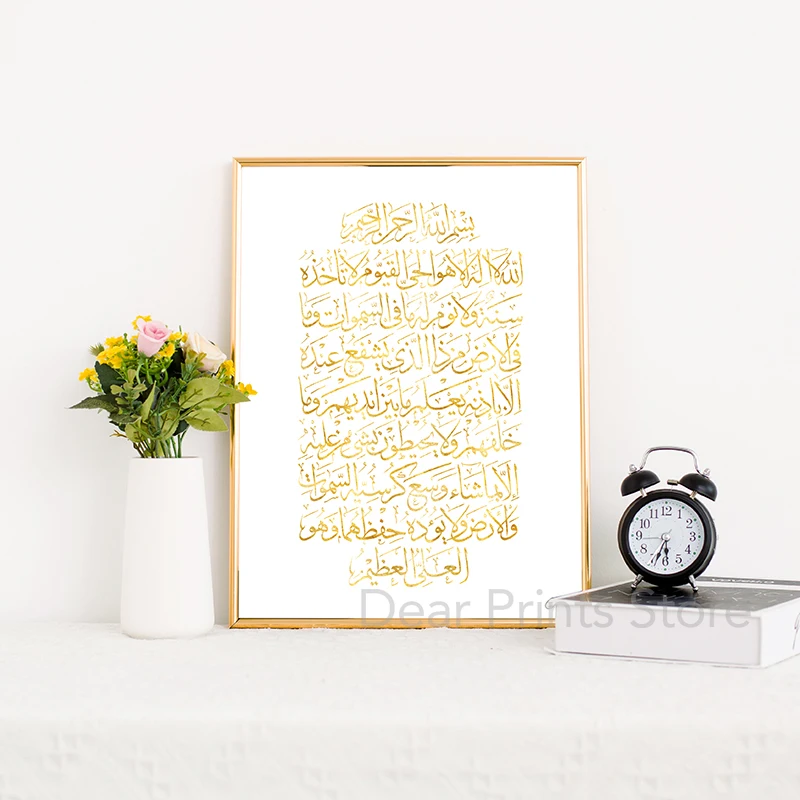 بِسْمِ اللهِ الرَّحْمٰنِ الرَّحِيْمِ
اَللهُ لَا اِلٰهَ اِلَّا هُوَ الْحَيُّ الْقَيُّوْمُ لَا تَأْخُذُهُ
سِنَةٌ وَلَا نَوْمٌ لَهُ مَا فِي السَّمٰوَاتِ وَمَا
فِي الْاَرْضِ مَنْ ذَا الَّذِيْ يَشْفَعُ عِنْدَهُ
اِلَّا بِاِذْنِهِ يَعْلَمُ مَا بَيْنَ اَيْدِيْهِمْ وَمَا
خَلْفَهُمْ وَلَا يُحِيْطُوْنَ بِشَيْءٍ مِنْ عِلْمِهِ
اِلَّا بِمَا شَاءَ وَسِعَ كُرْسِيُّهُ السَّمٰوَاتِ
وَالْاَرْضَ وَلَا يَؤُدُهُ حِفْظُهُمَا وَهُوَ
الْعَلِيُّ الْعَظِيْمُ
12
1
2
3
4
5
6
7
8
9
10
11
Dear Prints Store